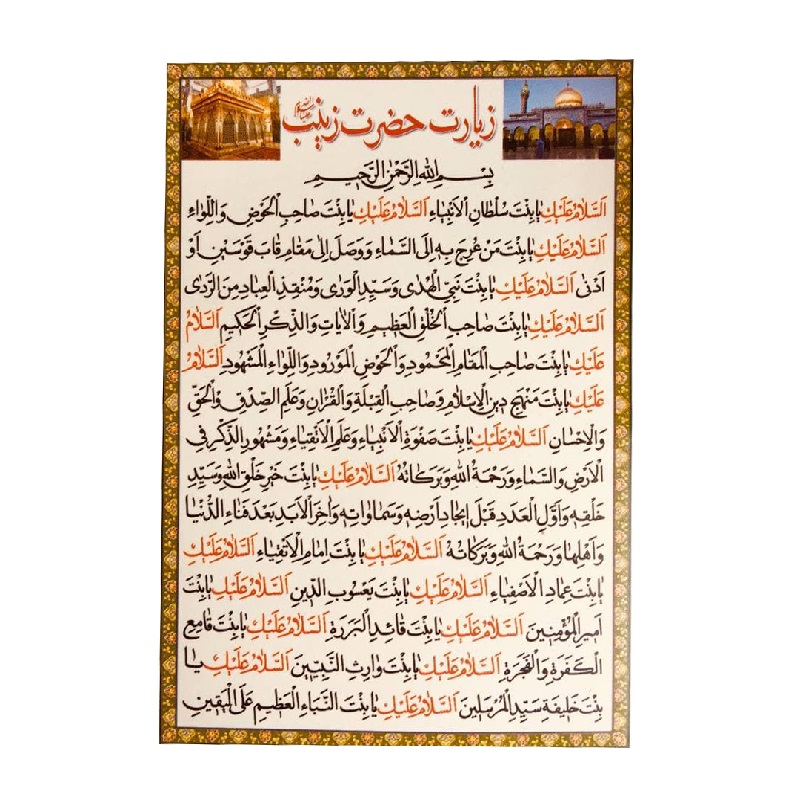 زیارت حضرت زینب سلام الله علیها
بِسْمِ اللهِ الرَّحْمٰنِ الرَّحيمِ
اَلسَّلامُ عَلَيْكِ يا بِنْتَ سُلْطانِ الْاَنْبِياءِ اَلسَّلامُ عَلَيْكِ يا بِنْتَ صاحِبِ الْحَوْضِ وَ اللِّواءِ
اَلسَّلامُ عَلَيْكِ يا بِنْتَ مَنْ عُرِجَ بِهِ اِلَى السَّماءِ وَ وَصَلَ اِلى مَقامِ قابَ قَوْسَيْنِ اَوْ
اَدْنى اَلسَّلامُ عَلَيْكِ يا بِنْتَ نَبِيِّ الْهُدى وَ سَيِّدِ الْوَرى وَ مُنْقِذِ الْعِبادِ مِنَ الرَّدى
اَلسَّلامُ عَلَيْكِ يا بِنْتَ صاحِبِ الْخُلْقِ الْعَظيمِ وَ الْاياتِ وَ الذِّكْرِ الْحَكيمِ اَلسَّلامُ
عَلَيْكِ يا بِنْتَ صاحِبِ الْمَقامِ الْمَحْمُودِ وَ الْحَوْضِ الْمَوْرُودِ وَ اللِّواءِ الْمَشْهُودِ اَلسَّلامُ
عَلَيْكِ يا بِنْتَ مَنْهَجِ دينِ الْاِسْلامِ وَ صاحِبِ الْقِبْلَةِ وَ الْقُرْانِ وَ عَلَمِ الصِّدْقِ وَ الْحَقِّ
وَ الْاِحْسانِ اَلسَّلامُ عَلَيْكِ يا بِنْتَ صَفْوَةِ الْاَنْبِياءِ وَ عَلَمِ الْاَتْقِياءِ وَ مَشْهُورِ الذِّكْرِ فِي
الْاَرْضِ وَ السَّماءِ وَ رَحْمَةُ اللهِ وَ بَرَكاتُهُ اَلسَّلامُ عَلَيْكِ يا بِنْتَ خَيْرِ خَلْقِ اللهِ وَ سَيِّدِ
خَلْقِهِ وَ اَوَّلِ الْعَدَدِ قَبْلَ ايجادِ اَرْضِهِ وَ سَماواتِهِ وَ اخِرِ الْاَبَدِ بَعْدَ فَناءِ الدُّنْيا
وَ اَهْلِها وَ رَحْمَةُ اللهِ وَ بَرَكاتُهُ اَلسَّلامُ عَلَيْكِ يا بِنْتَ اِمامِ الْاَتْقِياءِ اَلسَّلامُ عَلَيْكِ
يا بِنْتَ عِمادِ الْاَصْفِياءِ اَلسَّلامُ عَلَيْكِ يا بِنْتَ يَعْسُوبِ الدّينِ اَلسَّلامُ عَلَيْكِ يا بِنْتَ
اَميرِ الْمُؤْمِنينَ اَلسَّلامُ عَلَيْكِ يا بِنْتَ قائِدِ الْبَرَرَةِ اَلسَّلامُ عَلَيْكِ يا بِنْتَ قامِعِ
الْكَفَرَةِ وَ الْفَجَرَةِ اَلسَّلامُ عَلَيْكِ يا بِنْتَ وارِثِ النَّبِيّينَ اَلسَّلامُ عَلَيْكِ يا
بِنْتَ خَليفَةِ سَيِّدِ الْمُرْسَلينَ اَلسَّلامُ عَلَيْكِ يا بِنْتَ النَّبَاءِ الْعَظيمِ عَلَى الْيَقينِ